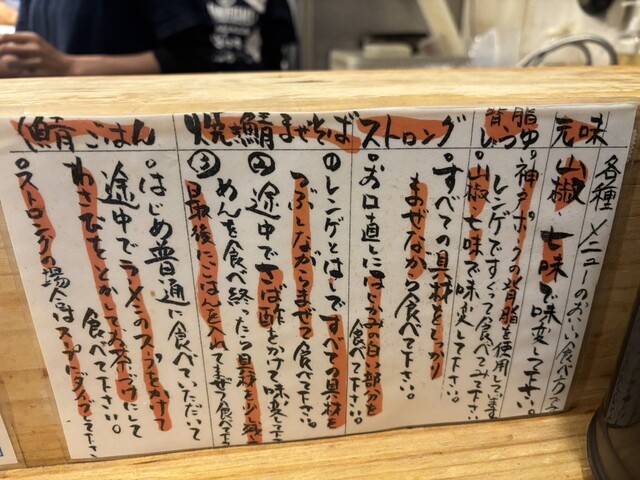 各種メニューのおいしい食べ方
元味
山椒 七味で味変して下さい。
背脂
しょうゆ
神戸ポークの背脂を使用しています
レンゲですくって食べてみて下さい
山椒 七味で味変して下さい。
ストロング
すべての具材をしっかり
まぜながら食べて下さい。
お口直しにはじかみの白い部分を
食べて下さい。
焼き鯖まぜそば
①レンゲとはしですべての具材を
つぶしながらまぜて食べて下さい。
②途中でさば酢をかけて味変して下さい
めんを食べ終ったら具材を少し残し
③最後にごはんを入れてまぜて食べて下さい
鯖ごはん
はじめ普通に食べていただいて
途中でラーメンのスープをかけて
わさびをとかしてお茶づけにして
食べて下さい。
ストロングの場合はスープにダイブして下さい